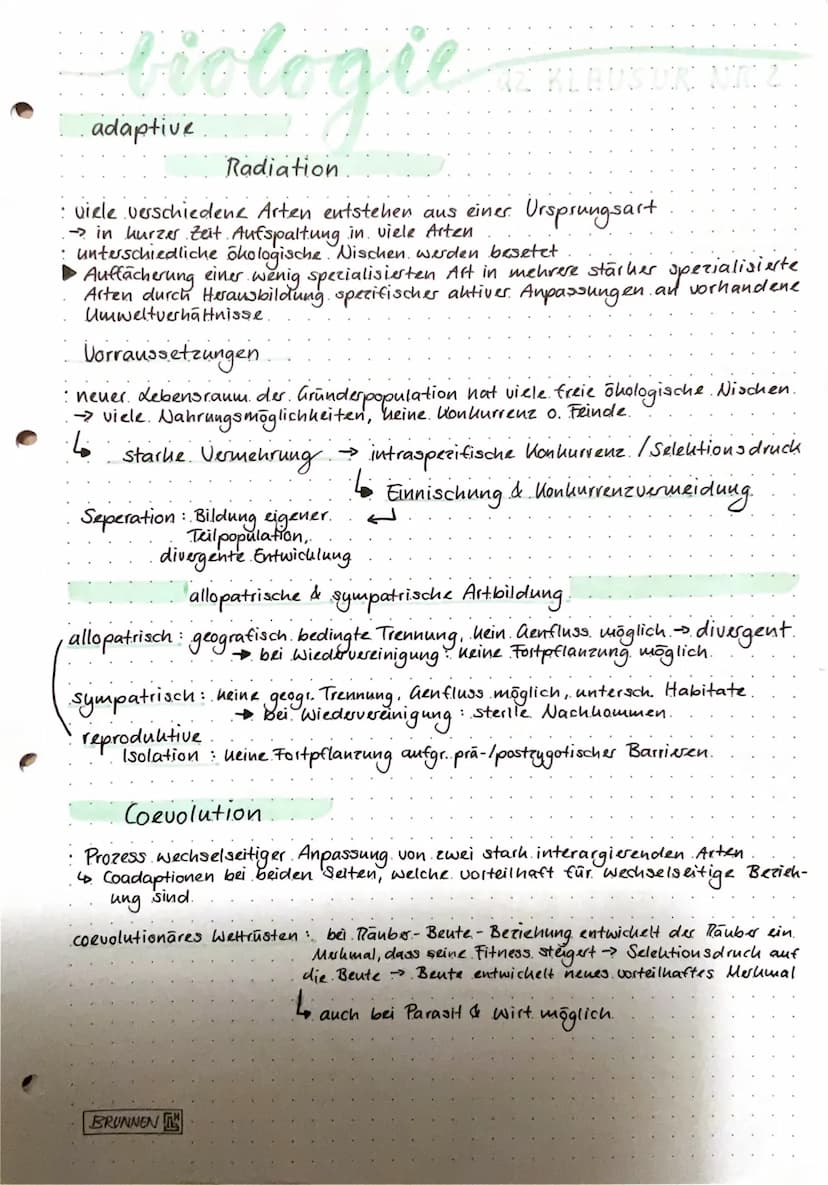 biologie
Q2 KLAUSUR NR 2
adaptive
Radiation
: viele verschiedene Arten entstehen aus einer Ursprungsart
→ in kurzer Zeit Aufspaltung in viele Arten
: unterschiedliche ökologische Nischen werden besetzt
▶ Auffächerung einer wenig spezialisierten Art in mehrere stärker spezialisierte
Arten durch Herausbildung spezifischer aktiver Anpassungen an vorhandene
Umweltverhältnisse
Vorraussetzungen
: neuer Lebensraum der Gründerpopulation hat viele freie ökologische Nischen
→ viele Nahrungsmöglichkeiten, keine Konkurrenz o. Feinde
↳ starke Vermehrung → intraspezifische Konkurrenz / Selektionsdruck
↳ Einnischung & Konkurrenzvermeidung
Seperation : Bildung eigener ↵
Teilpopulation,
divergente Entwicklung
allopatrische & sympatrische Artbildung
allopatrisch : geografisch bedingte Trennung, kein Genfluss möglich → divergent
→ bei Wiedervereinigung : keine Fortpflanzung möglich
sympatrisch : keine geogr. Trennung, Genfluss möglich, untersch. Habitate
→ bei Wiedervereinigung : sterile Nachkommen
reproduktive
Isolation : keine Fortpflanzung aufgr. prä-/postzygotischer Barrieren
Coevolution
: Prozess wechselseitiger Anpassung von zwei stark interargierenden Arten
↳ Coadaptionen bei beiden Seiten, welche vorteilhaft für wechselseitige Bezieh-
ung sind
coevolutionäres Wettrüsten : bei Räuber-Beute-Beziehung entwickelt der Räuber ein
Merkmal, dass seine Fitness steigert → Selektionsdruck auf
die Beute → Beute entwickelt neues vorteilhaftes Merkmal
↳ auch bei Parasit & Wirt möglich
BRUNNEN